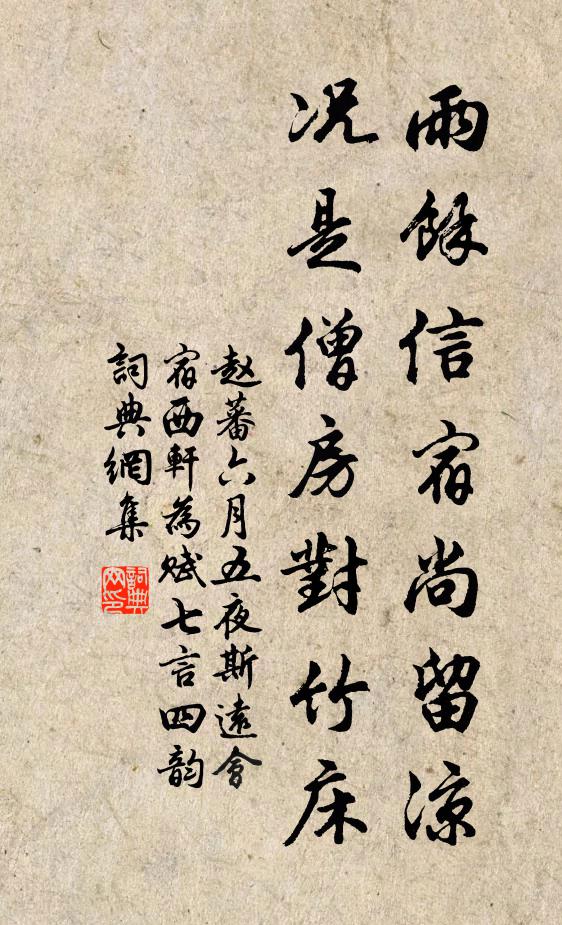 雨餘信宿尚留涼
况是僧房對竹床
赵蕃六月五夜斯遠會
宿西軒為赋七言四韵
詞典網集
詞典
网印